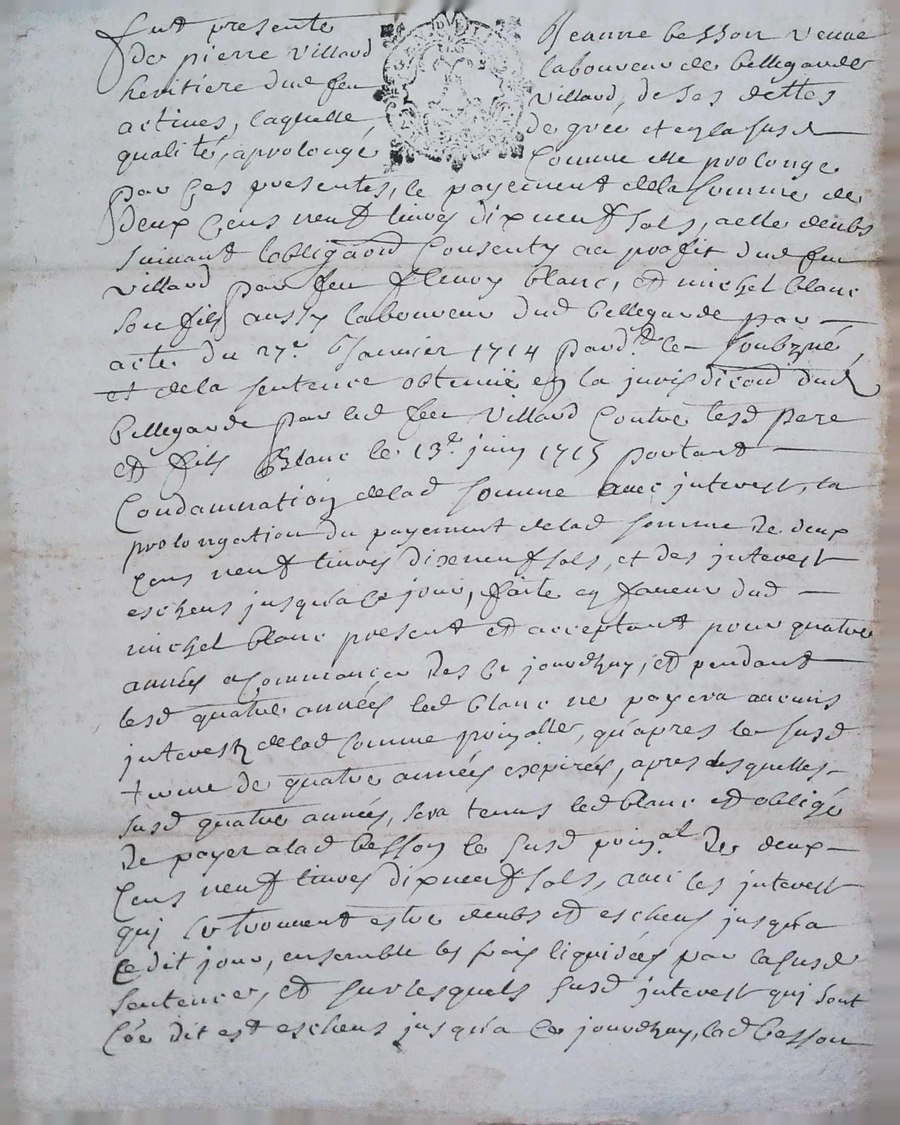 fut presente Jeanne besson veuve
de pierre villard laboureur de bellegarde
heritiere dud feu villard, de ses dettes
actives, laquelle de gréé et en la susd
qualité, a prolongé comme elle prolonge
par ces presentes, le payement de la somme de
deux cens neuf livres dixneuf sols, a elle deubs
suivant lobligaon consenty au profit dud feu
villard par feu fleury blanc, et michel blanc
son fils aussy laboureur dud bellegarde par
acte du 27e Janvier 1714 pard. le soubzné,
et de la sentence obtenüe en la jurisdicon dud
bellegarde par led feu villard contre lesd pere
et fils Blanc le 13e juin 1715 portant
Condamnation de lad somme avec interest, la
prolongation du payement de lad somme de deux
cens neuf livres dixneuf sols, et des interest
escheus jusqua ce jour, faite en faveur dud
michel blanc present et acceptant pour quatre
années a commancer des ce jourdhuy, et pendant
lesd quatre années led blanc ne payera aucuns
interestz de lad somme prinalle, qu'apres le susd
terme de quatre années expirées, apres lesquelles
susd quatre années, sera tenus led blanc et obligé
de payer a lad besson le susd prinal de deux
cens neuf livres dixneuf sols, avec les interest
qui se trouvent estre deubs et escheus jusqu'a
cedit jour, ensemble les frais liquidées par la susd
sentence, et sur lesquels susd interest qui sont
cõe dit est escheus jusqu'a ce jourdhuy, lad besson